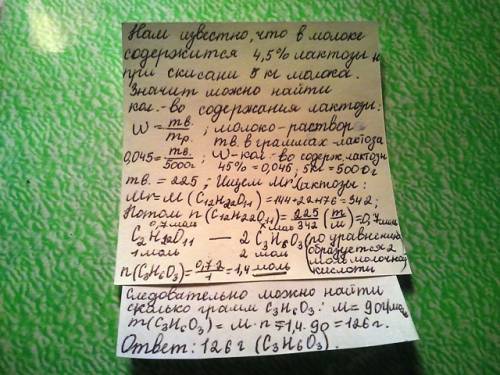 Нам известно, что в молоке
содержится 4,5% лактозы и
при скисани 5 кг молока.
Значит можно найти
кол.-во содержания лактозы:
W = mв./mр. ; молоко-раствор
mв. в граммах - лактоза
0,045 = mв./5000г ; W-кол-во содерж. лактозы
45% = 0,045; 5кг = 5000г
mв. = 225 ; Ищем Mr лактозы:
Mr = M (C12H22O11) = 144+22+176 = 342;
Потом n (C12H22O11) = 225/342 (m/M) = 0,7 моль
0,7 моль x моль
C12H22O11 — 2 C3H6O3 (по уравнению
1 моль 2 моль образуется 2
моль молочной
n(C3H6O3) = 0,7·2/1 = 1,4 моль кислоты)
Следовательно можно найти
сколько грамм C3H6O3: M = 90 г/моль
m(C3H6O3) = M·n = 1,4·90 = 126г.
Ответ: 126 г (C3H6O3).